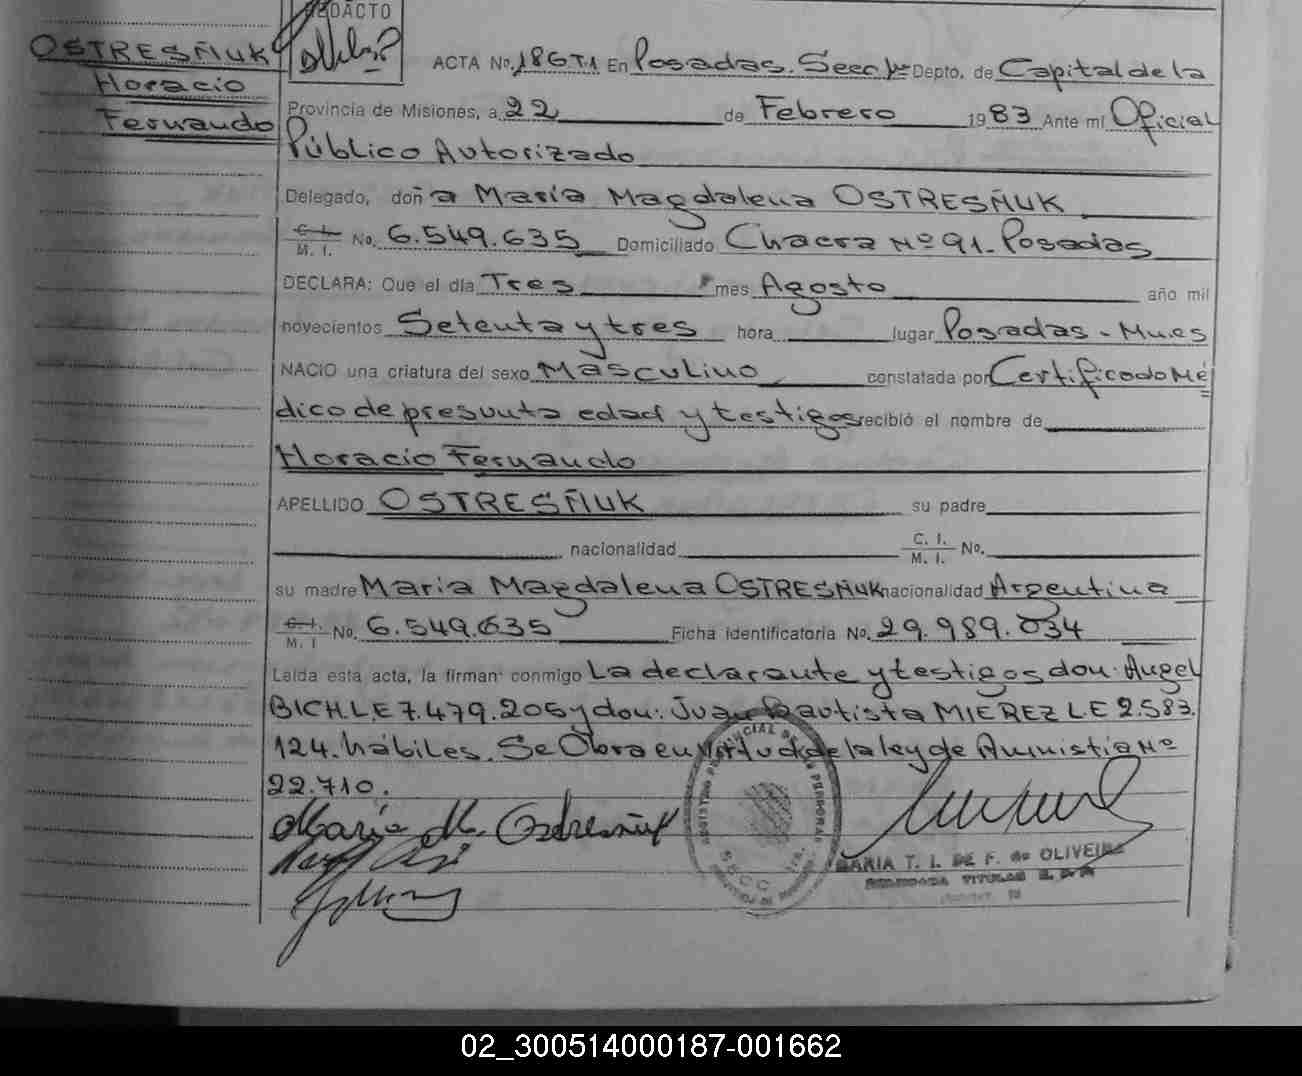 REDACTO
OSTRESÑUK
Horacio
Fernando
ACTA No. 186T1 En Posadas. Secc 1ª Depto. de Capital de la
Provincia de Misiones, a 22 de Febrero 1983 Ante mí Oficial
Público Autorizado
Delegado, doña María Magdalena OSTRESÑUK
C. I. M. I. No. 6.549.635 Domiciliado Chacra Nº 91. Posadas
DECLARA: Que el día Tres mes Agosto año mil
novecientos Setenta y tres hora lugar Posadas - Mnes
NACIO una criatura del sexo Masculino constatada por Certificado Mé
dico de presunta edad y testigos recibió el nombre de
Horacio Fernando
APELLIDO OSTRESÑUK su padre
nacionalidad C. I. M. I. No.
su madre Maria Magdalena OSTRESÑUK nacionalidad Argentina
C. I. M. I No. 6.549.635 Ficha identificatoria No. 29.989.034
Leída esta acta, la firman conmigo La declarante y testigos don: Angel
BICH L.E 7.479.205 y don: Juan Bautista MIEREZ L.E 2.583.
124. hábiles. Se Obra en virtud de la ley de Amnistia Nº
22.710.
María M. Ostresñuk
REGISTRO PROVINCIAL DE LAS PERSONAS
SECC. 1a.
MARIA T. I. DE F. de OLIVEIRA
TITULAR
02_300514000187-001662